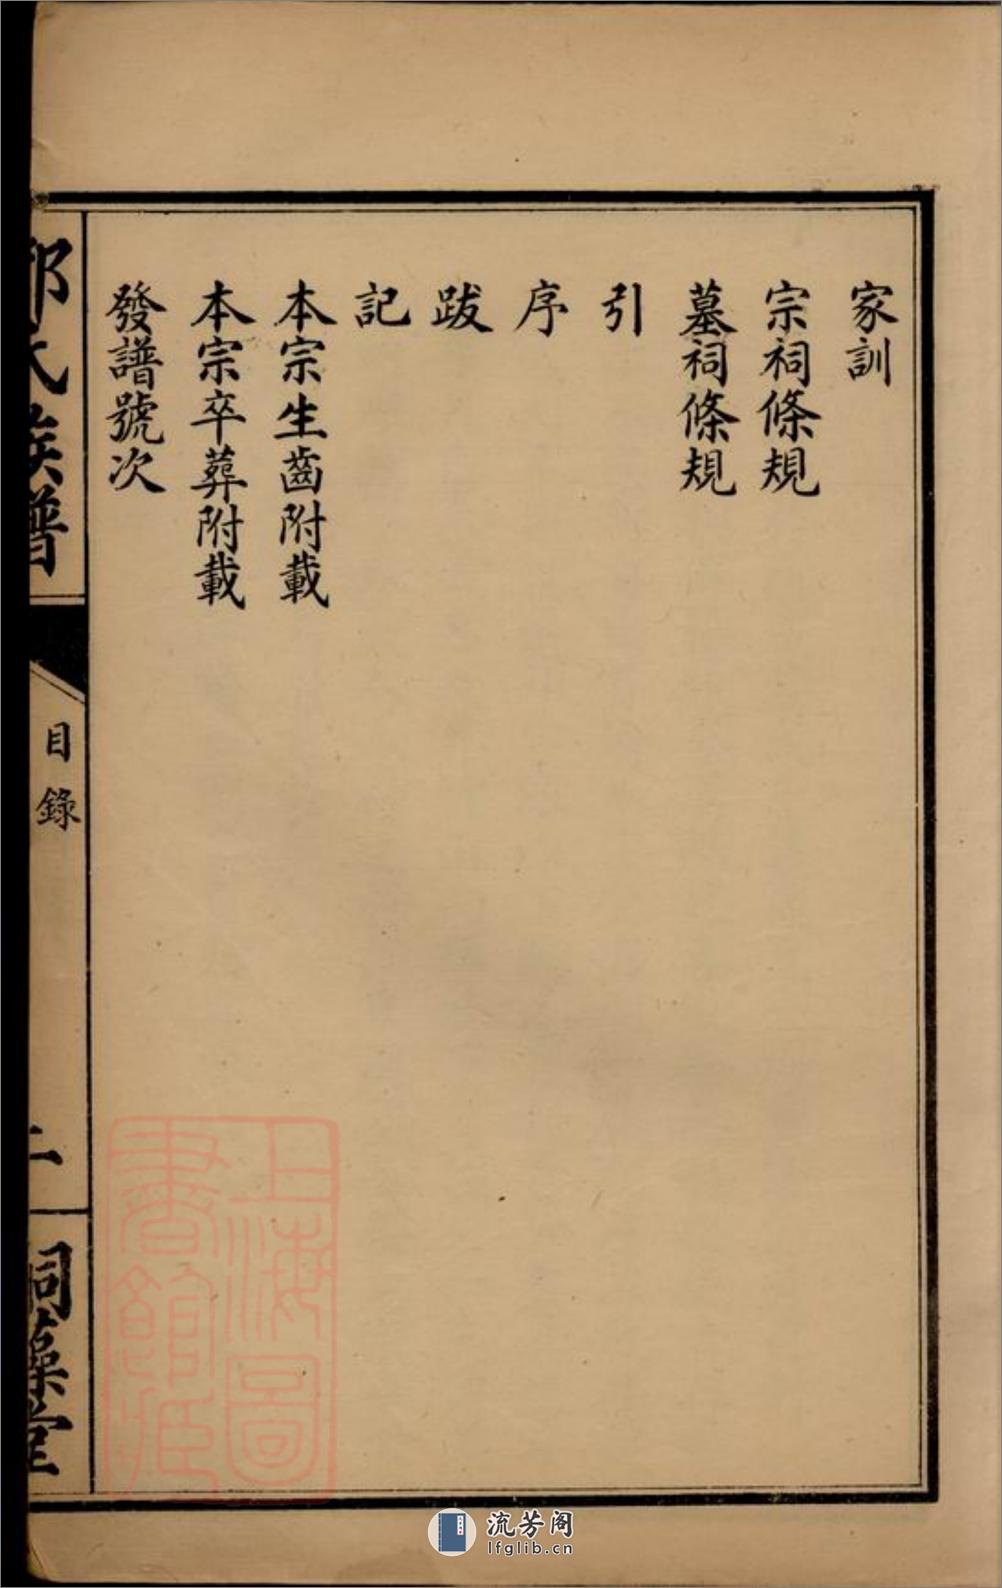 家訓
宗祠條規
墓祠條規
引
序
跋
記
本宗生齒附載
本宗卒葬附載
發譜號次
氏族譜
目錄
二
藻堂
上海圖
書館藏
流芳阁
lfglib.cn